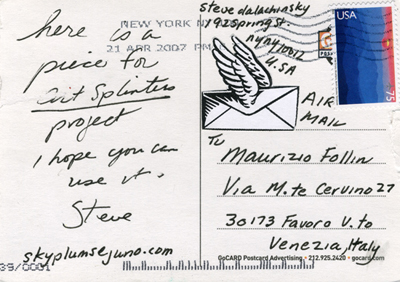 steve dalachinsky
192 Spring st.
ny ny 10012
U.S.A
NEW YORK NY
21 APR 2007 PM
USA
75
here is a
piece for
art Splinters
project
i hope you can
use it.
Steve
skyplums@juno.com
AIR
MAIL
To
Maurizio Follin
Via M.te Cervino 27
30173 Favoro V.to
Venezia, Italy
GoCARD Postcard Advertising • 212.925.2420 • gocard.com